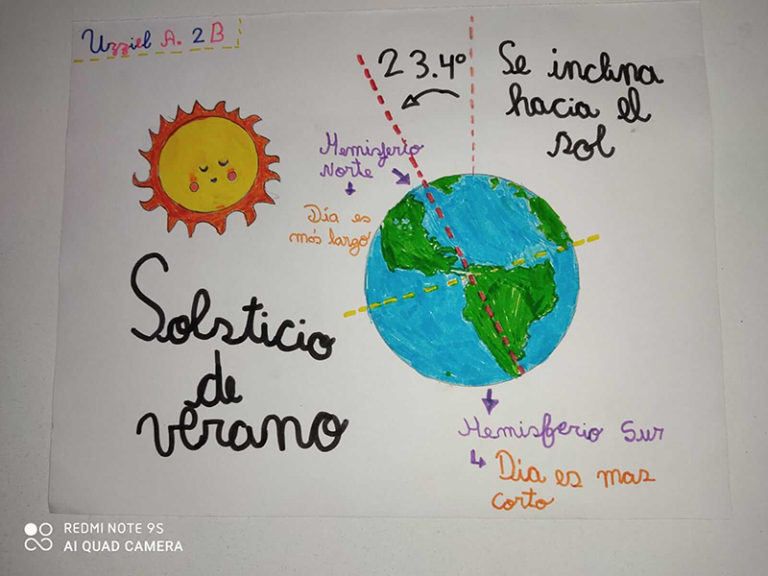 Uzziel A. 2B
23.4°
Se inclina
hacia el
sol
Hemisferio
Norte
Día es
más largo
Solsticio
de
verano
Hemisferio Sur
Día es mas
corto
REDMI NOTE 9S
AI QUAD CAMERA